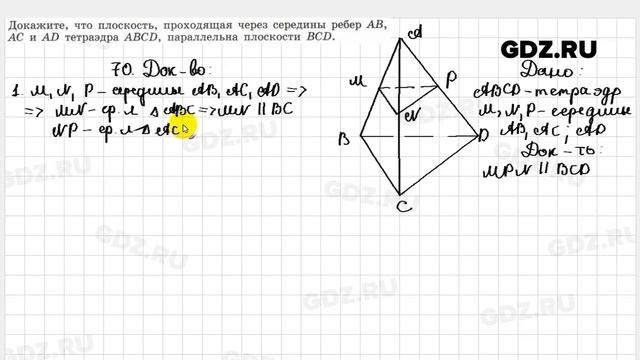 Докажите, что плоскость, проходящая через середины ребер AB,
AC и AD тетраэдра ABCD, параллельна плоскости BCD.
GDZ.RU
70. Док-во:
1. M, N, P - середины AB, AC, AD =>
=> MN - ср. л △ ABC => MN || BC
NP - ср. л △ AC
A
M
P
N
B
D
C
Дано:
ABCD - тетраэдр
M, N, P - середины
AB, AC, AD
Док-ть:
MPN || BCD